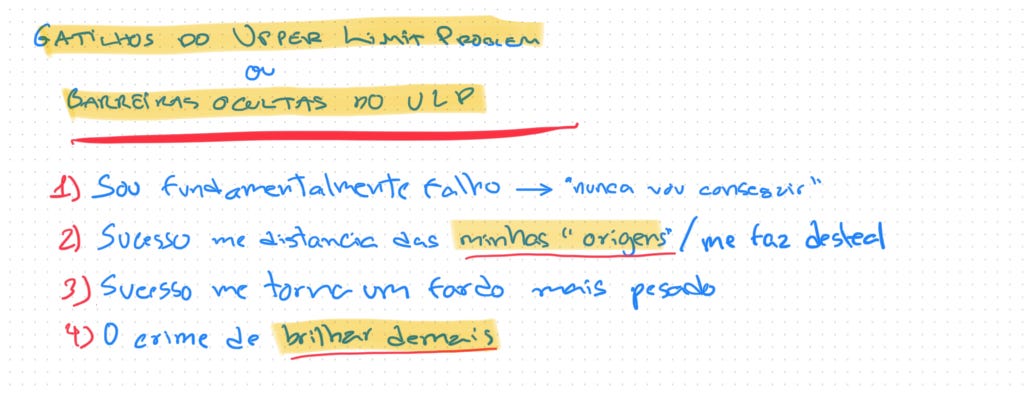 GATILHOS DO UPPER LIMIT PROBLEM
OU
BARREIRAS OCULTAS DO ULP
1) Sou fundamentalmente falho → "nunca vou conseguir"
2) Sucesso me distancia das minhas "origens" / me faz desleal
3) Sucesso me torna um fardo mais pesado
4) O crime de brilhar demais